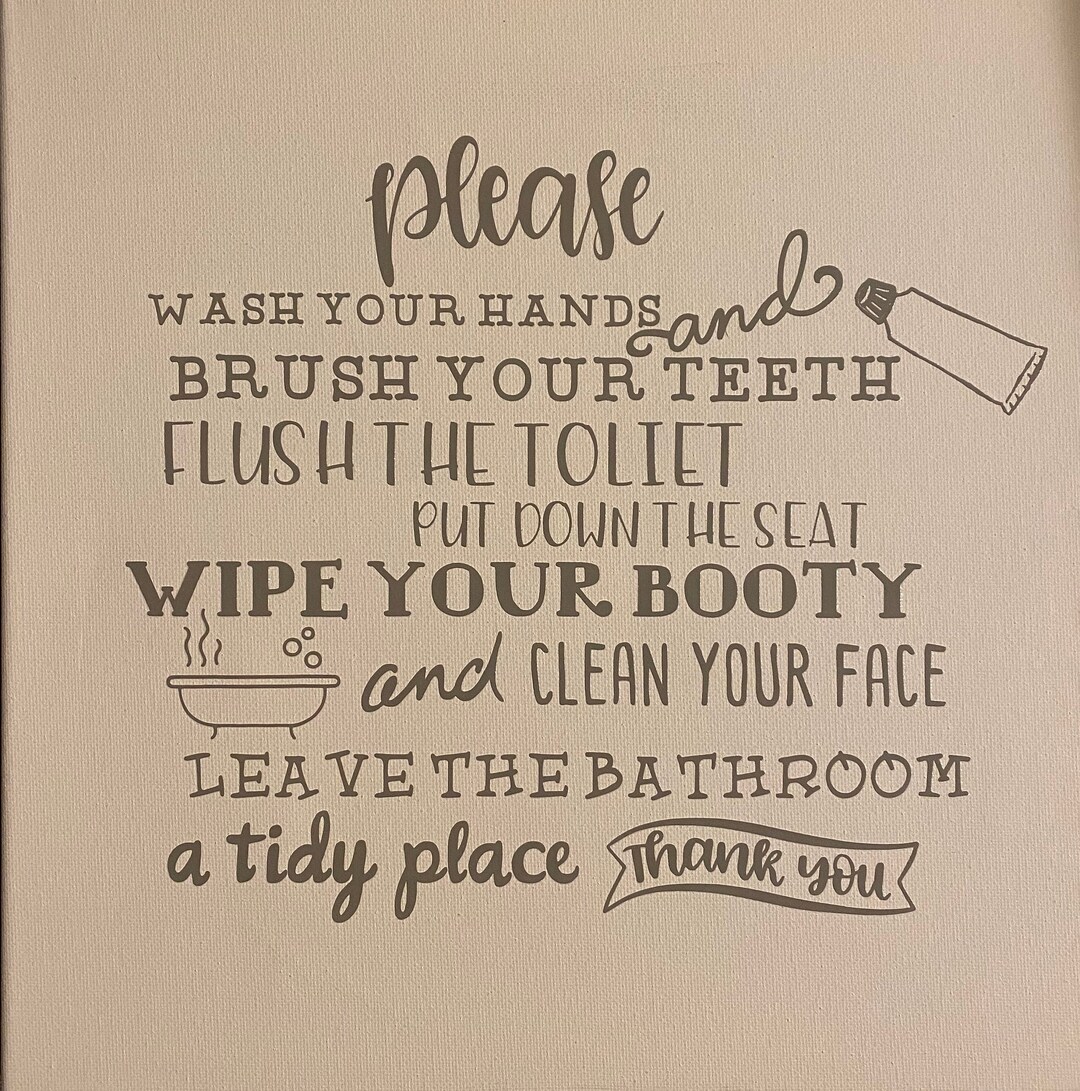 please
WASH YOUR HANDS and
BRUSH YOUR TEETH
FLUSH THE TOLIET
PUT DOWN THE SEAT
WIPE YOUR BOOTY
and CLEAN YOUR FACE
LEAVE THE BATHROOM
a tidy place Thank you